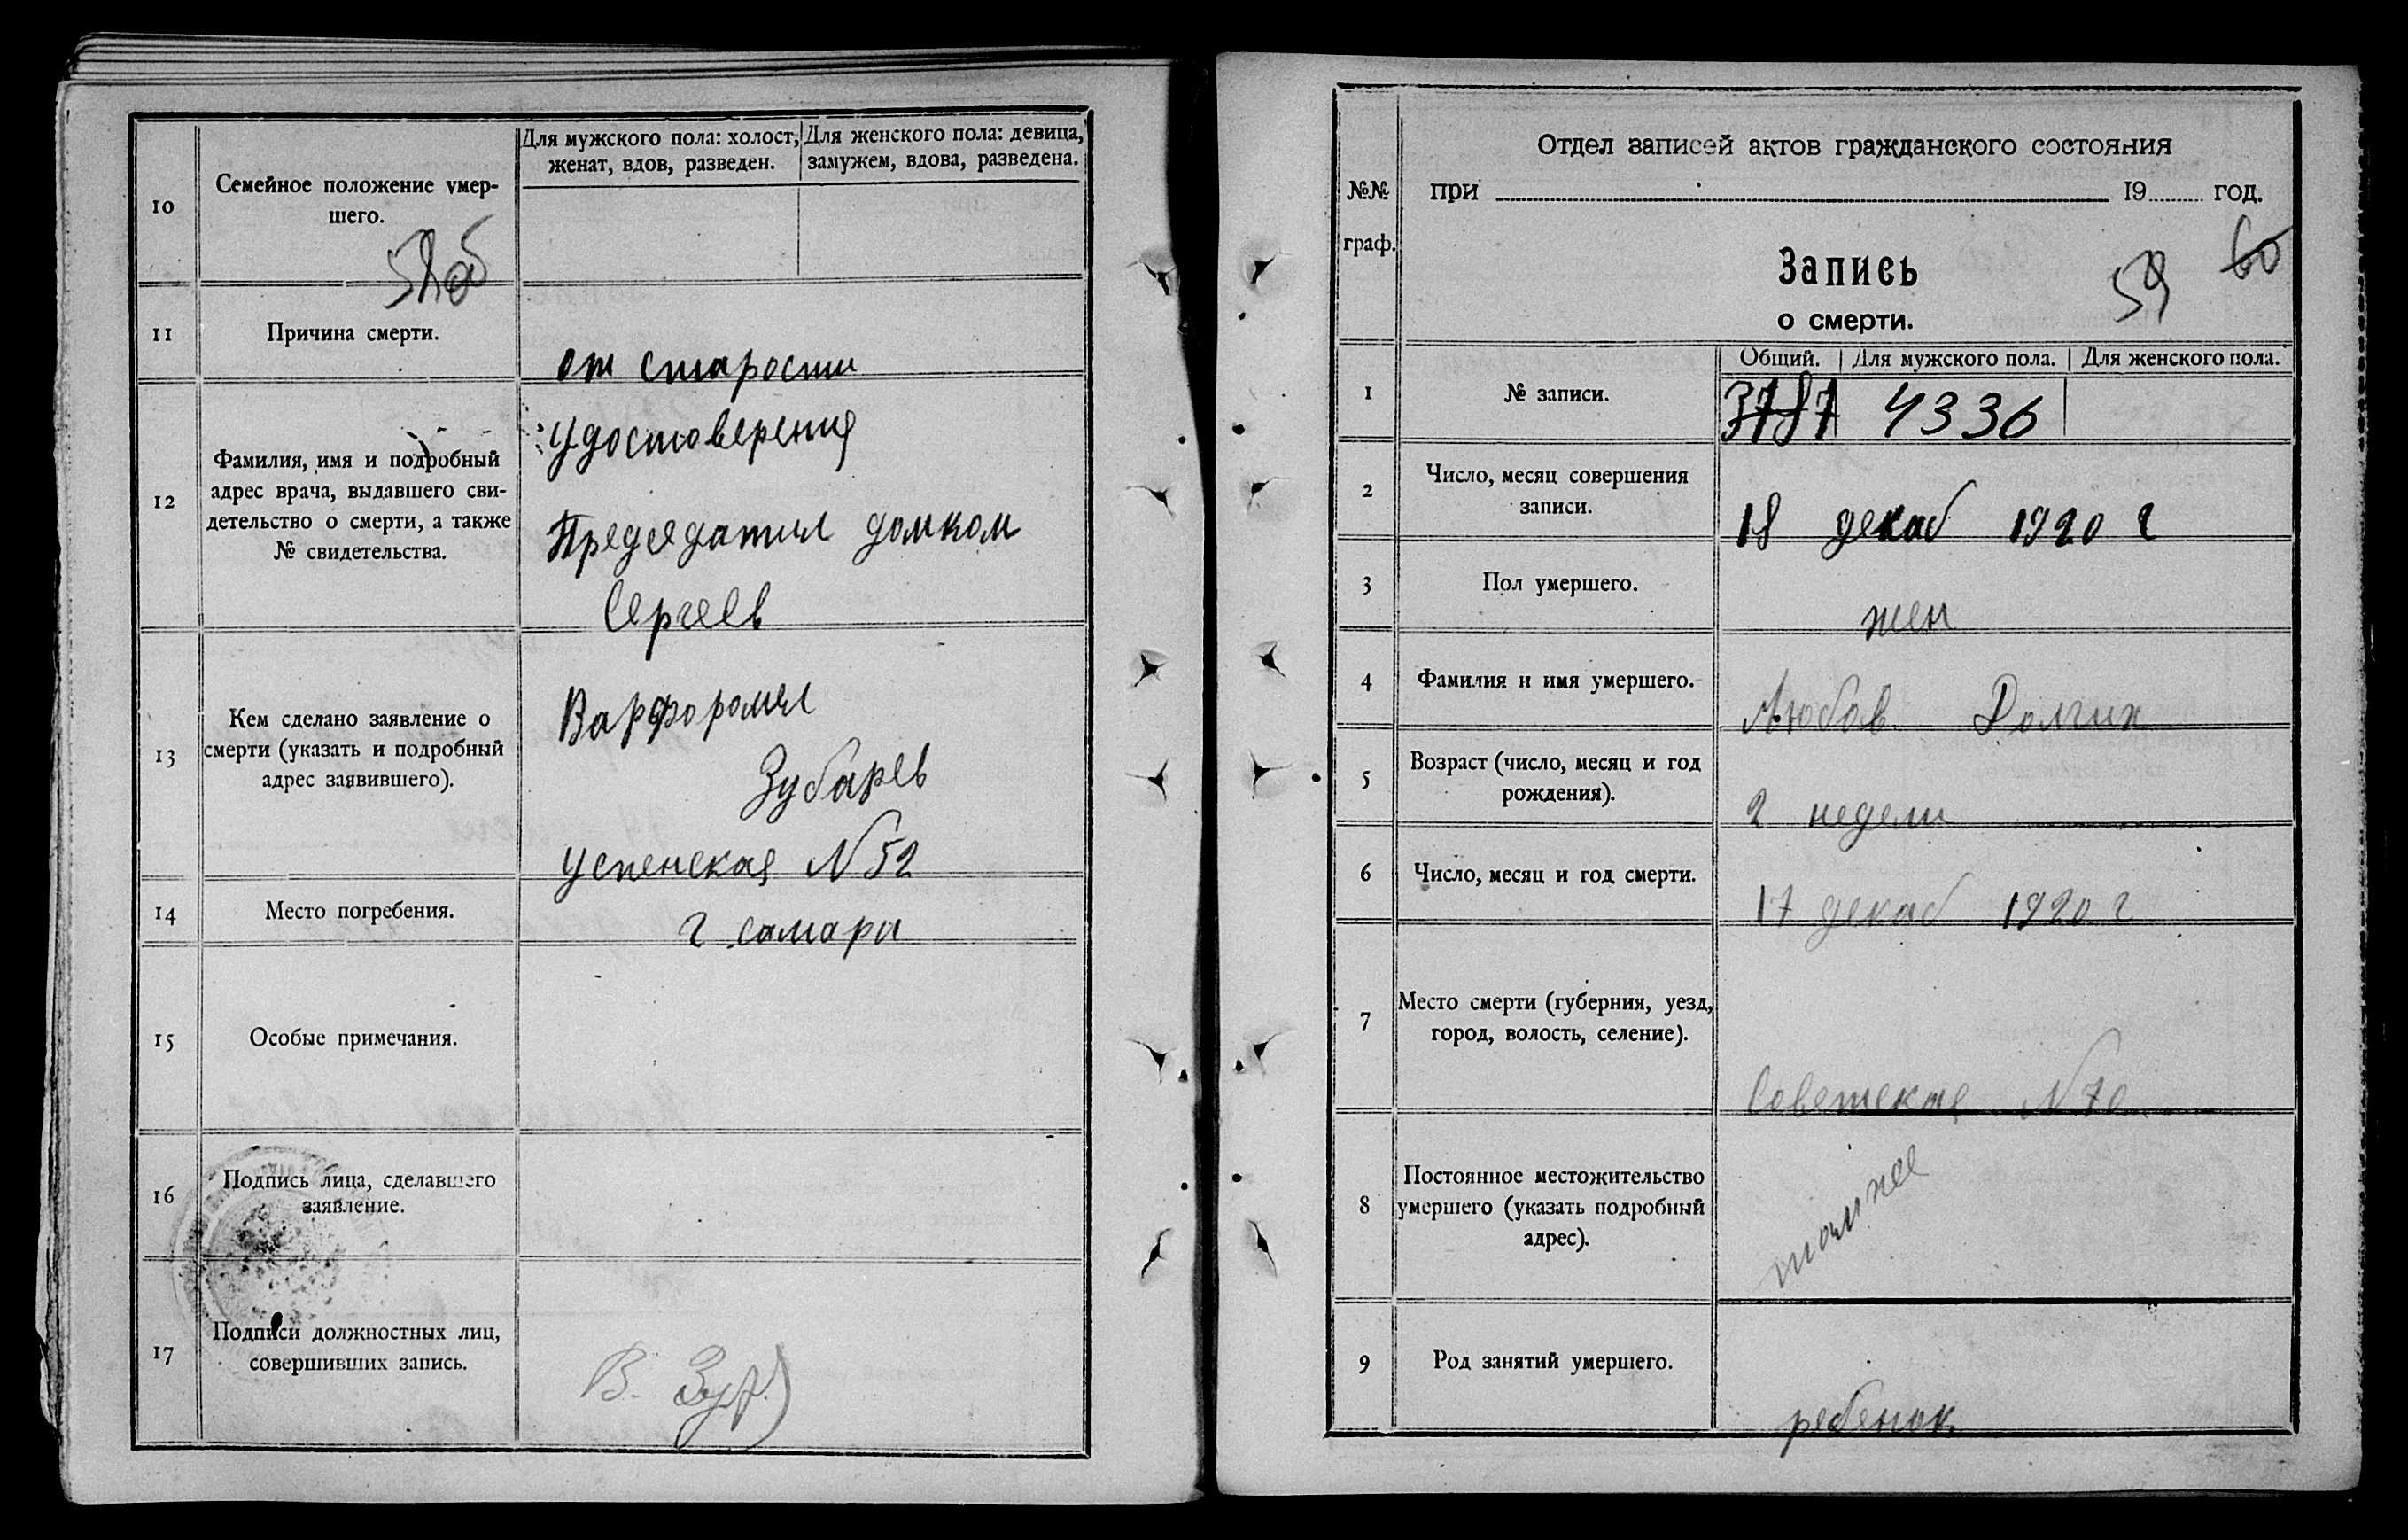 10
Семейное положение умер-
шего.
Для мужского пола: холост,
женат, вдов, разведен.
Для женского пола: девица,
замужем, вдова, разведена.
11
Причина смерти.
от старости
12
Фамилия, имя и подробный
адрес врача, выдавшего сви-
детельство о смерти, а также
№ свидетельства.
Удостоверения
Председател домком
Сергеев
13
Кем сделано заявление о
смерти (указать и подробный
адрес заявившего).
Варфоромел
Зубарев
Успенская N 52
14
Место погребения.
г самара
15
Особые примечания.
16
Подпись лица, сделавшего
заявление.
17
Подписи должностных лиц,
совершивших запись.
№№
граф.
Отдел записей актов гражданского состояния
при 19 год.
Запись
о смерти.
59
60
1
№ записи.
Общий. Для мужского пола. Для женского пола.
3787 4336
2
Число, месяц совершения
записи.
18 декаб 1920 г
3
Пол умершего.
жен
4
Фамилия и имя умершего.
Любов Долгих
5
Возраст (число, месяц и год
рождения).
2 недели
6
Число, месяц и год смерти.
17 декаб 1920 г
7
Место смерти (губерния, уезд,
город, волость, селение).
Советская N 70
8
Постоянное местожительство
умершего (указать подробный
адрес).
9
Род занятий умершего.
ребенок